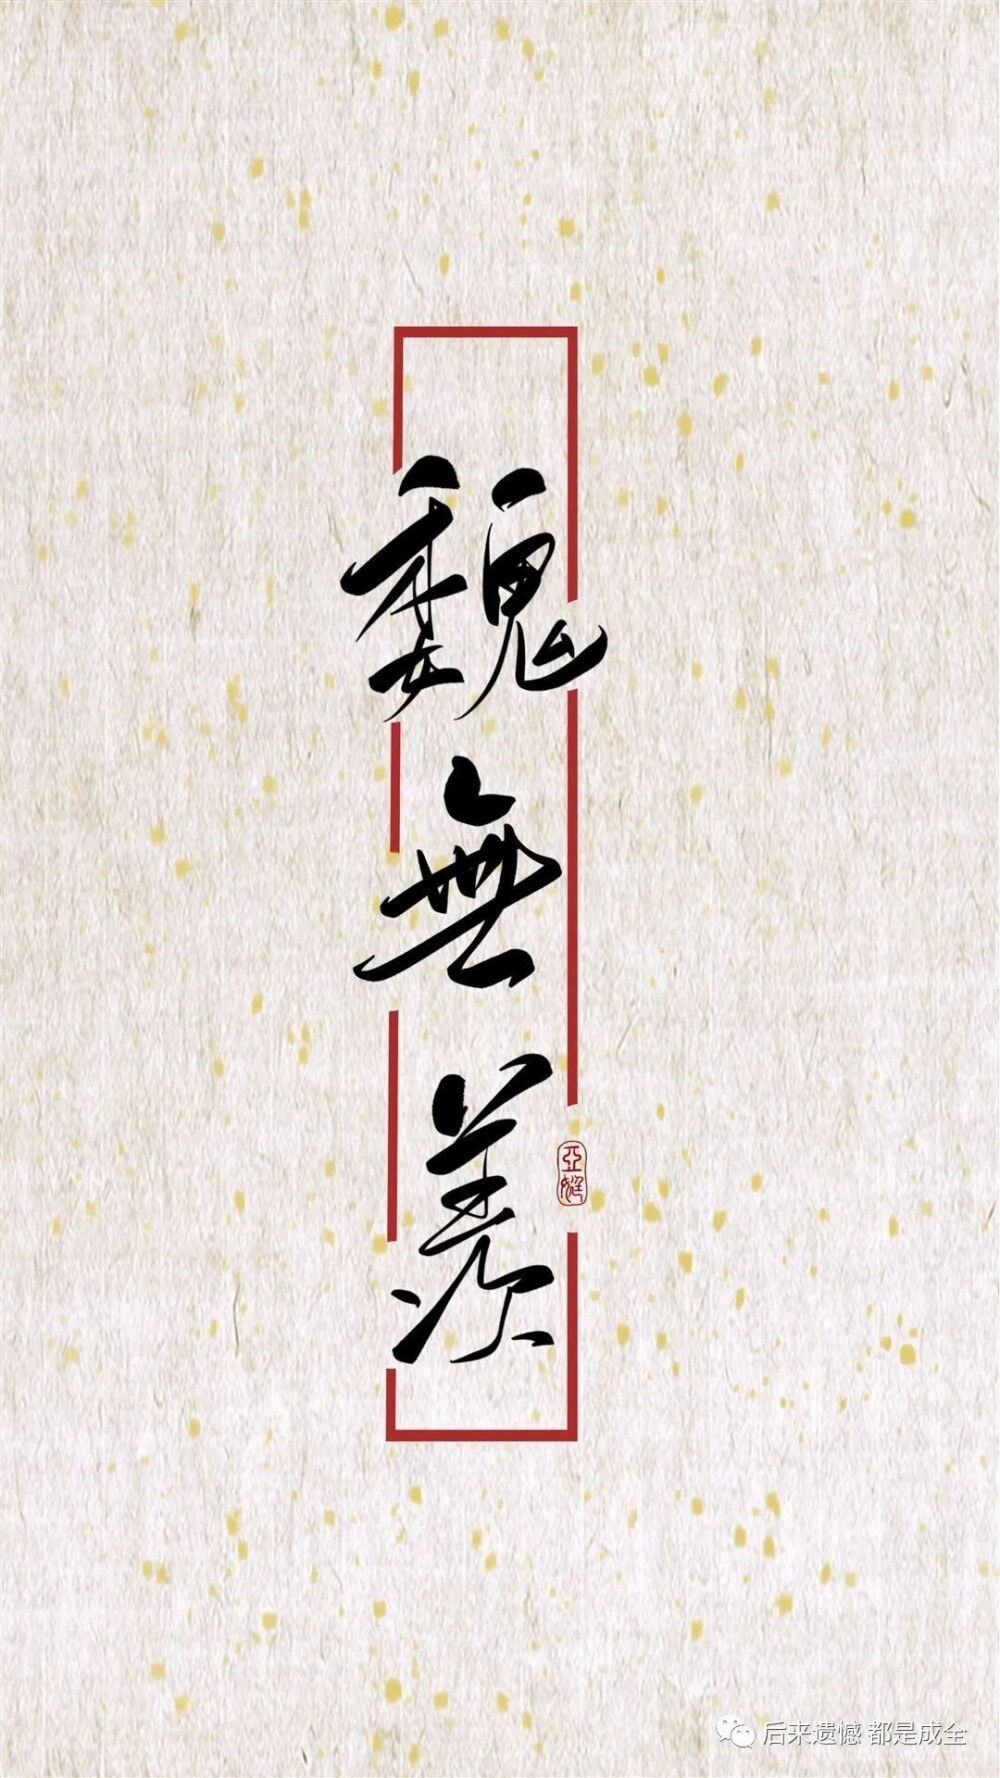 魏無羨
亞
后来遗憾 都是成全